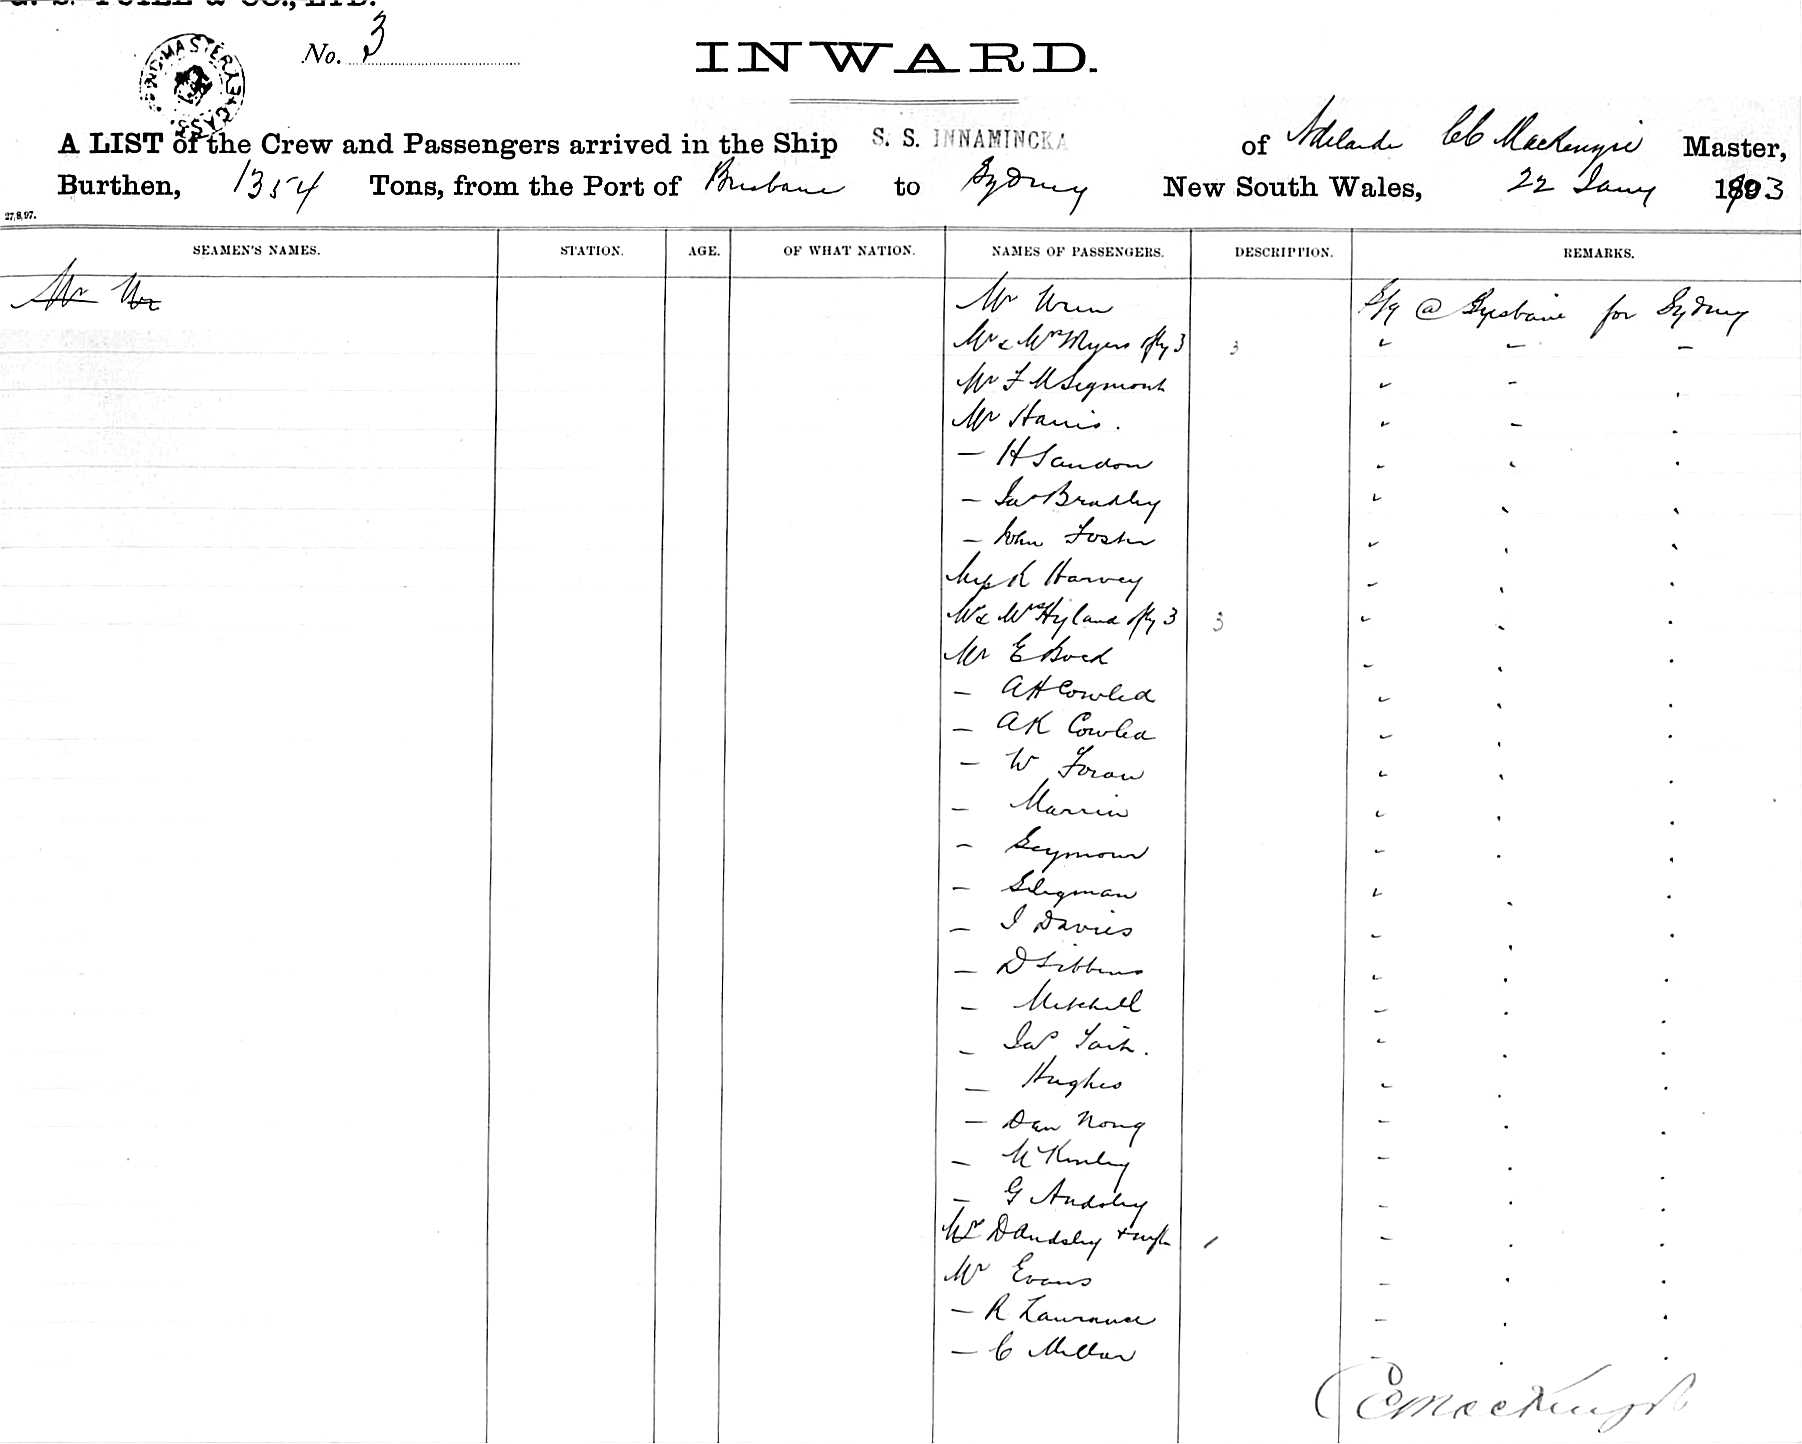 No. 3
INWARD.
A LIST of the Crew and Passengers arrived in the Ship S. S. INNAMINCKA of Adelaide CC MacKenzie Master,
Burthen, 1354 Tons, from the Port of Brisbane to Sydney New South Wales, 22 Jany 1903
27,8,97.
SEAMEN'S NAMES. STATION. AGE. OF WHAT NATION. NAMES OF PASSENGERS. DESCRIPTION. REMARKS.
Mr Wren @ Brisbane for Sydney
Mr & Mrs Myers 3 3
Mr
Mr Harris.
— H Sandon
— Jas Bradley
— John Foster
K Harvey
Mr & Mrs Hyland 3 3
Mr E Bock
— A H Cowled
— A K Cowled
— W Foran
—
— Seymour
— Seligman
— I Davies
— D
— Mitchell
— Jas Tait.
— Hughes
— Dan Nong
— McKinley
— G Audsley
D Audsley
Mr Evans
— R Lawrance
— C Millar
MacKenzie